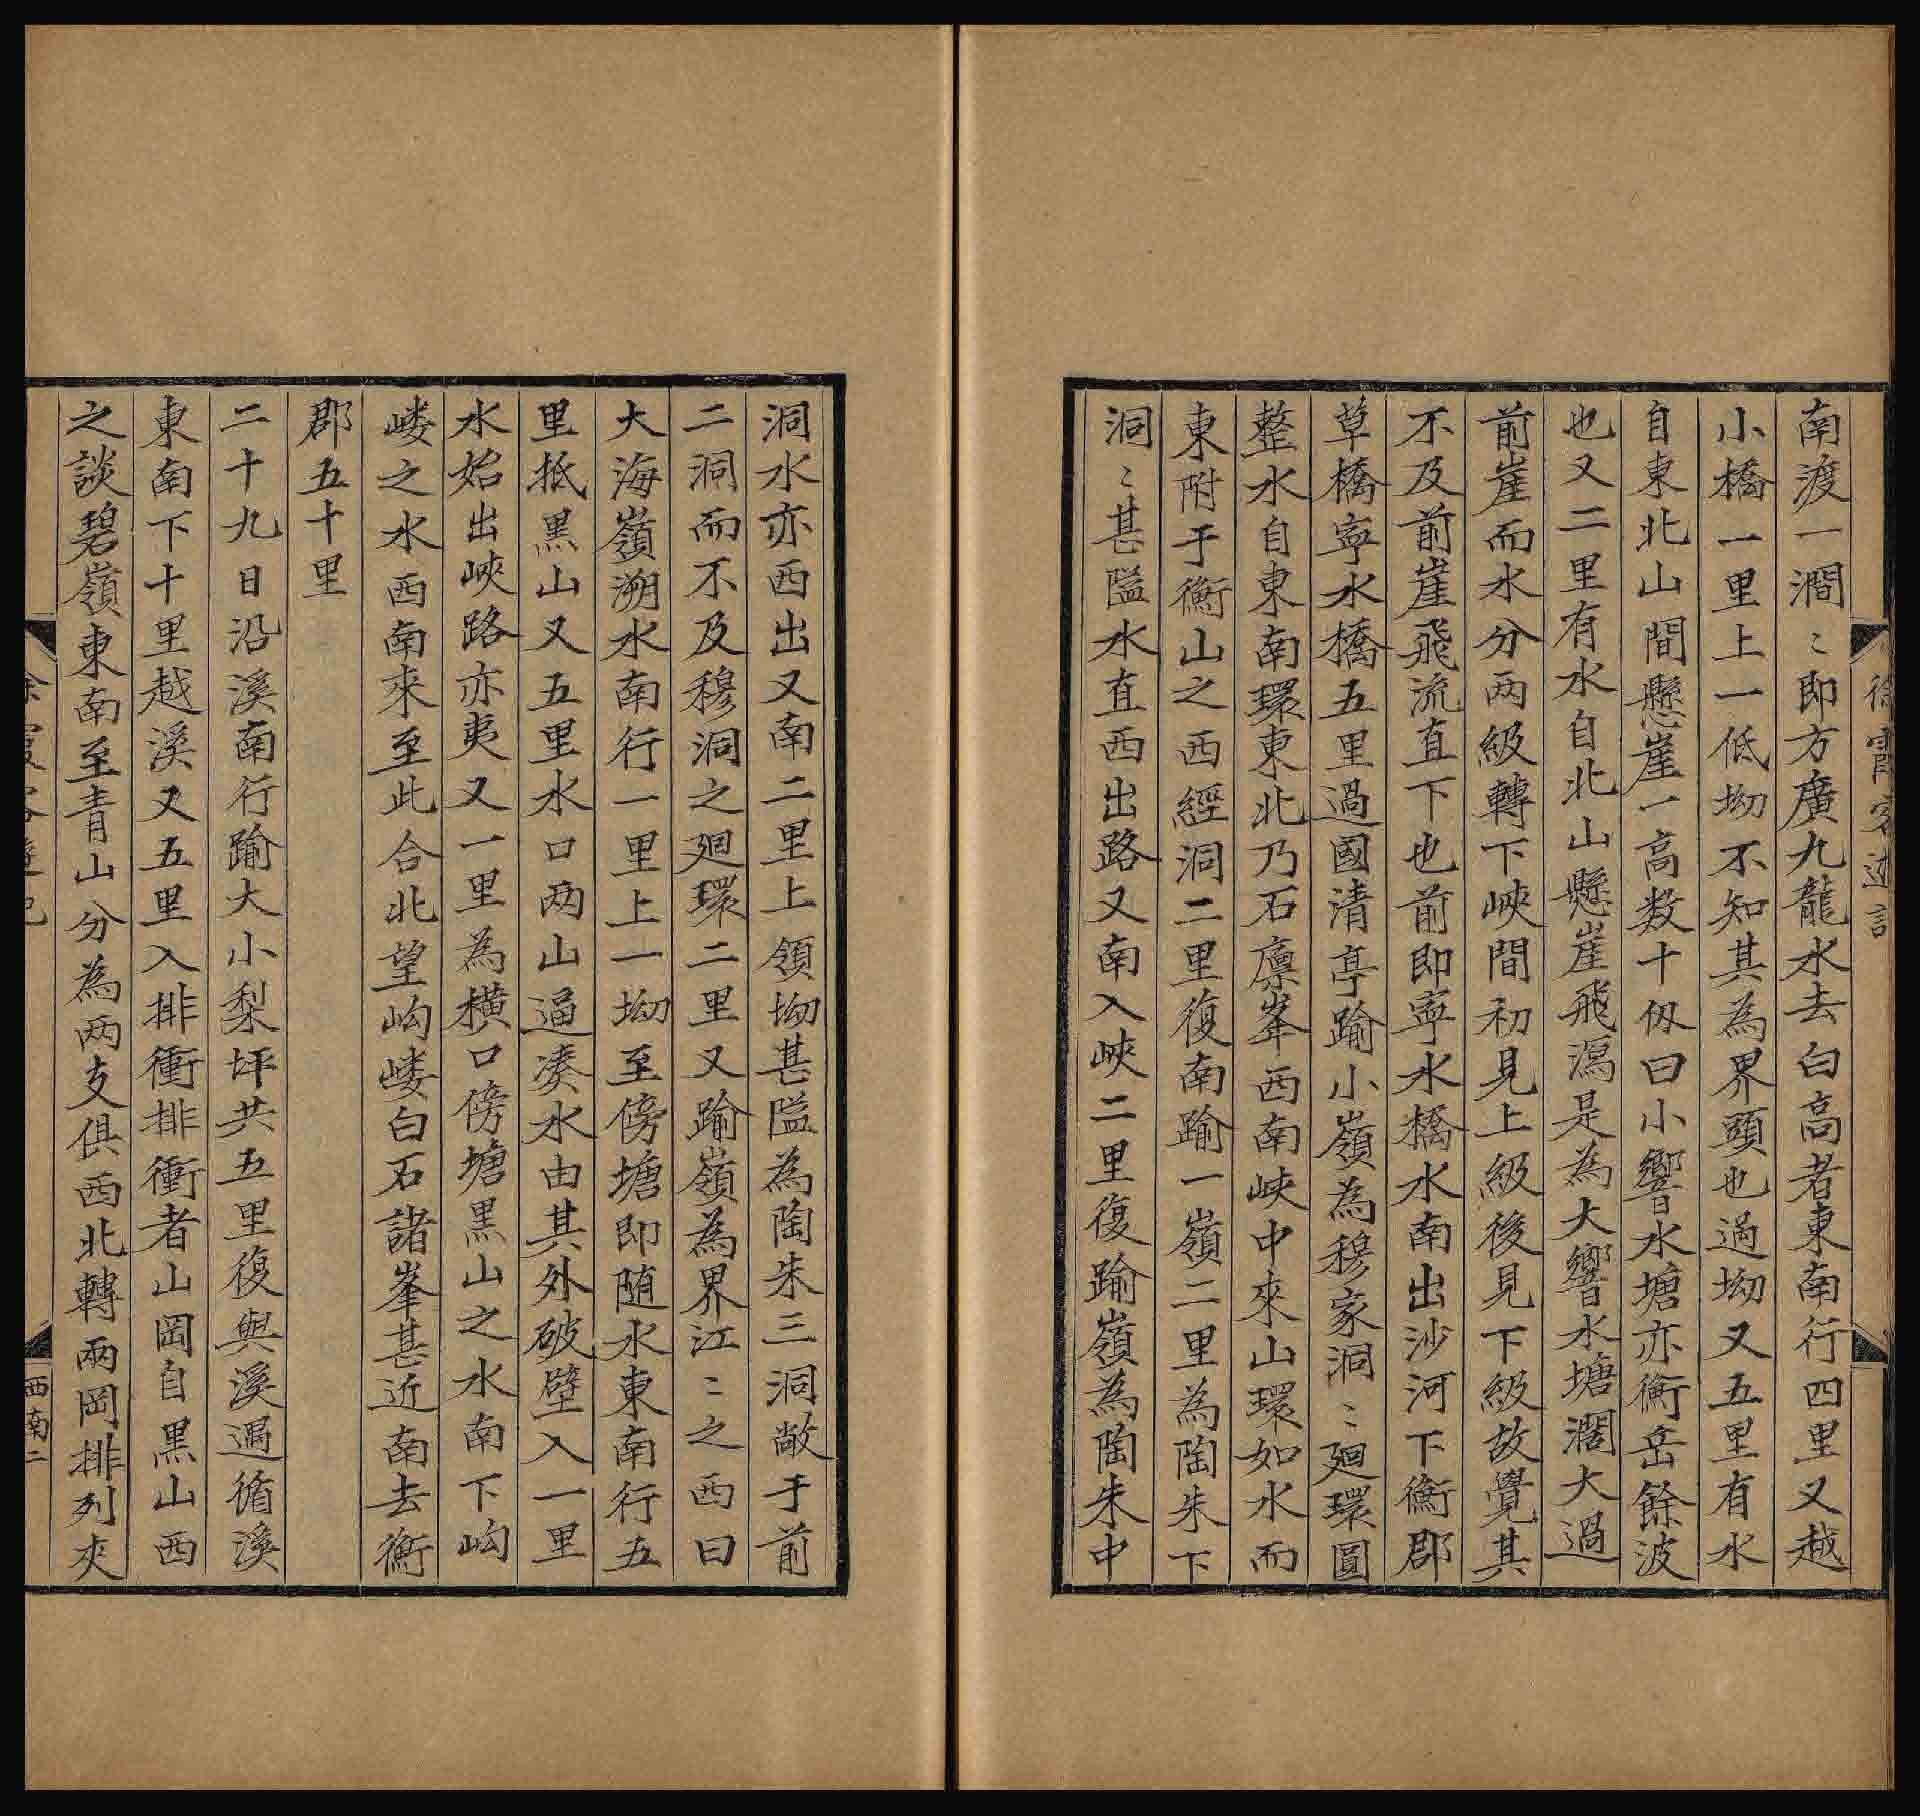 南渡一澗〻即方廣九龍水去白高者東南行四里又越
小橋一里上一低坳不知其為界頭也過坳又五里有水
自東北山間懸崖一高数十仭曰小響水塘亦衡岳餘波
也又二里有水自北山懸崖飛瀉是為大響水塘濶大過
前崖而水分两級轉下峽間初見上級後見下級故覺其
不及前崖飛流直下也前即寧水橋水南出沙河下衡郡
草橋寧水橋五里過國清亭踰小嶺為穆家洞〻廻環圓
整水自東南環東北乃石廪峯西南峽中來山環如水而
東附于衡山之西經洞二里復南踰一嶺二里為陶朱下
洞〻甚隘水直西出路又南入峽二里復踰嶺為陶朱中
洞水亦西出又南二里上領坳甚隘為陶朱三洞敞于前
二洞而不及穆洞之廻環二里又踰嶺為界江〻之西曰
大海嶺溯水南行一里上一坳至傍塘即随水東南行五
里抵黑山又五里水口两山逼湊水由其外破壁入一里
水始出峽路亦夷又一里為橫口傍塘黑山之水南下岣
嶁之水西南來至此合北望岣嶁白石諸峯甚近南去衡
郡五十里
二十九日沿溪南行踰大小梨坪共五里復與溪遇循溪
東南下十里越溪又五里入排衝排衝者山岡自黑山西
之談碧嶺東南至青山分為两支俱西北轉兩岡排列夾
西南二